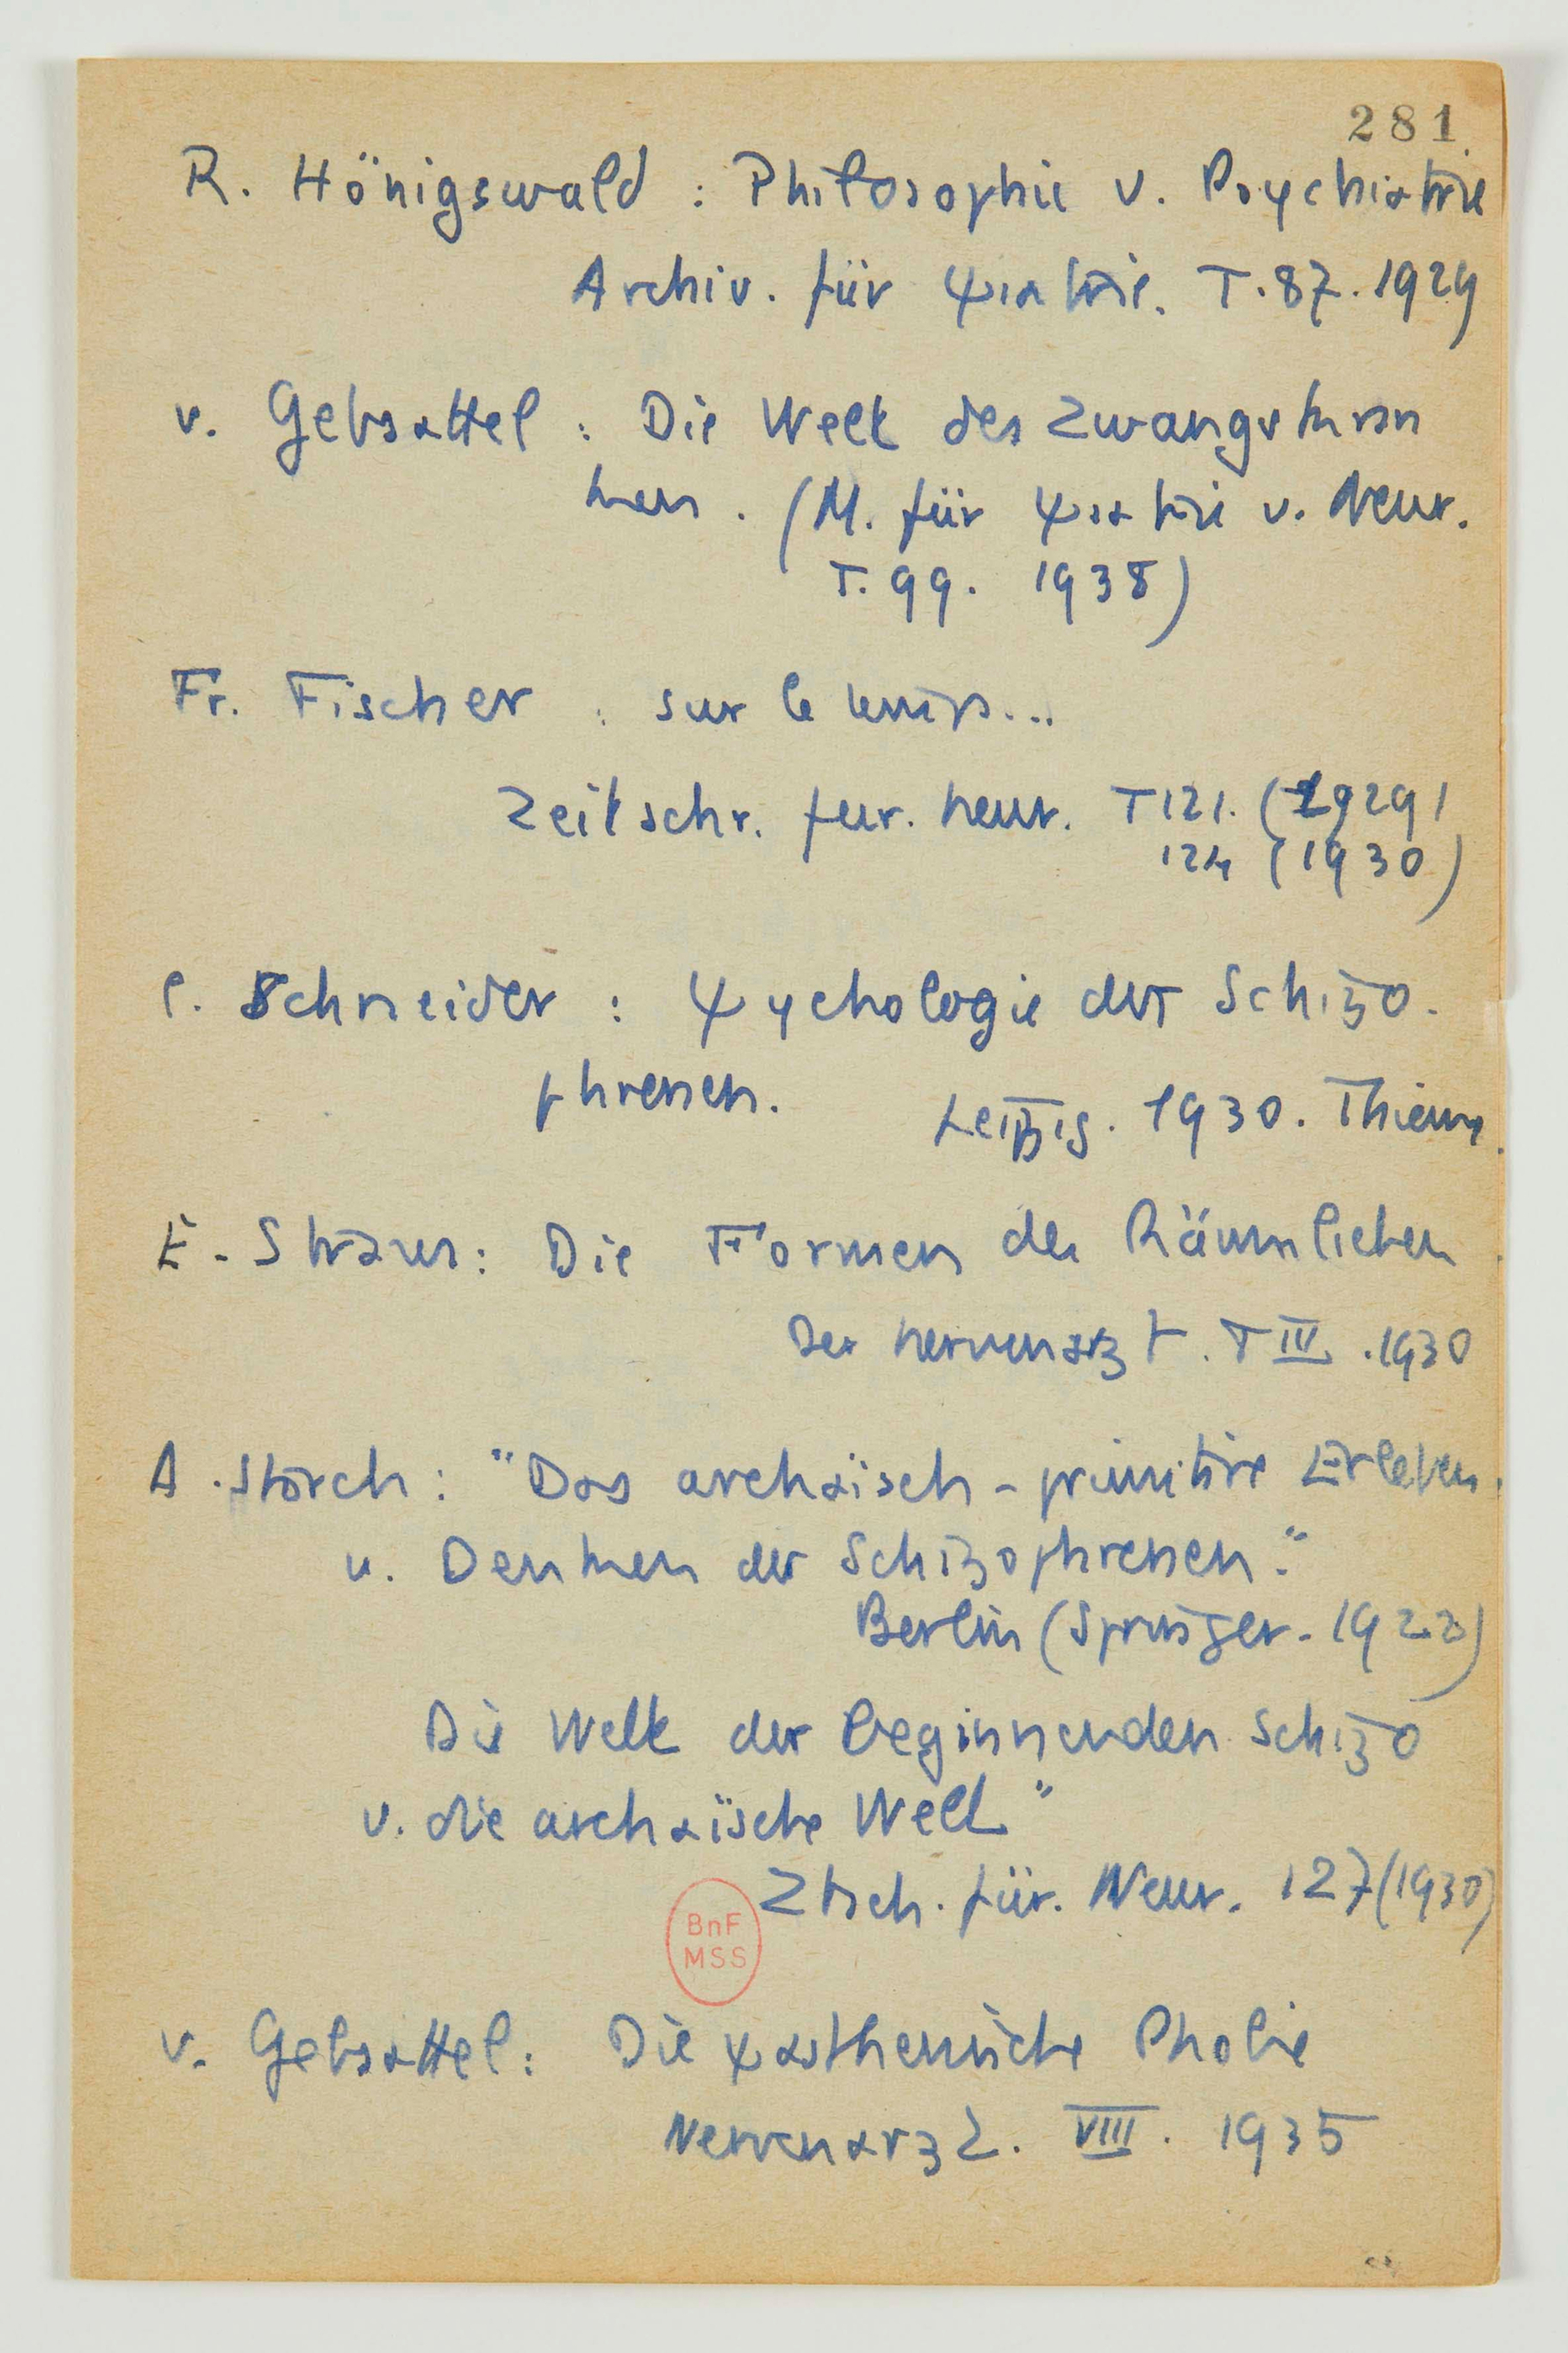 281
R. Hönigswald : Philosophie v. Psychiatrie
Archiv. für ψiatrie. T.87. 1929
v. Gebsattel : Die Welt des Zwangskran
ken. (M. für ψiatrie v. Neur.
T. 99. 1938)
Fr. Fischer : sur le temps...
Zeitschr. fur. neur. T 121. (1929)
124 (1930)
C. Schneider : ψychologie der Schizo-
phrenen.
Leipzig. 1930. Thieme.
E. Straus : Die Formen des Räumlichen.
Der Nervenarzt. T IV. 1930
A. Storch : "Das archaïsch-primitive Erleben.
u. Denken der Schizophrenen."
Berlin (Springer. 1922)
Die Welt der beginnenden Schizo
v. die archaïsche Welt"
Ztsch. für. Neur. 127 (1930)
BnF
MSS
v. Gebsattel : Die ψasthenische Phobie
Nervenarzt. VIII. 1935